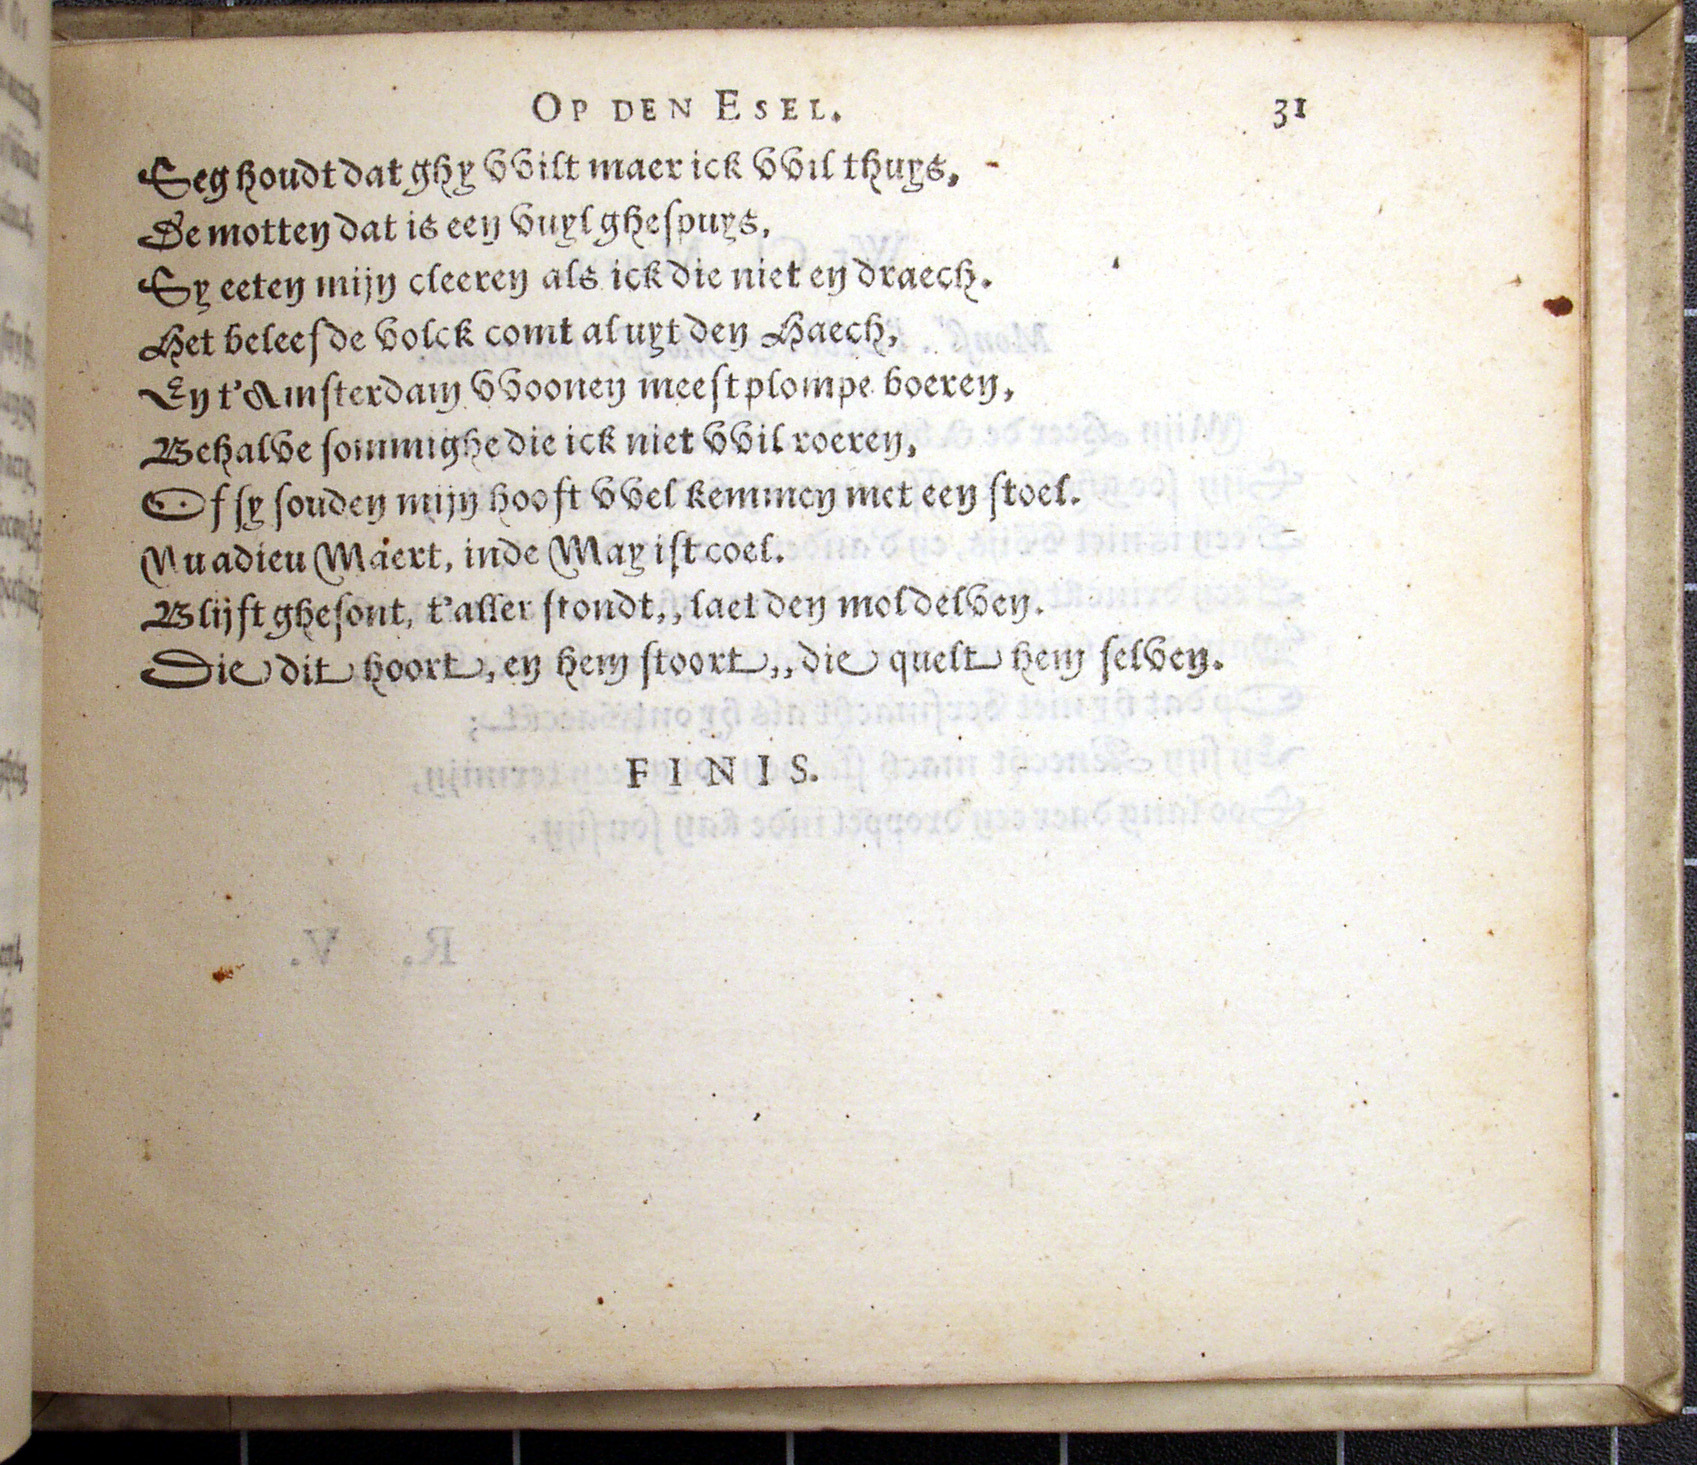 OP DEN ESEL. 31
Seg houdt dat ghy vvilt maer ick vvil thuys,
De motten dat is een vuyl ghespuys,
Sy eeten mijn cleeren als ick die niet en draech.
Het beleefde volck comt al uyt den Haech,
En t'Amsterdam vvoonen meest plompe boeren,
Behalve sommighe die ick niet vvil roeren,
Of sy souden mijn hooft vvel kemmen met een stoel.
Nu adieu Maert, inde May ist coel.
Blijft ghesont, t'aller stondt,, laet den mol delven.
Die dit hoort, en hem stoort,, die quelt hem selven.
FINIS.